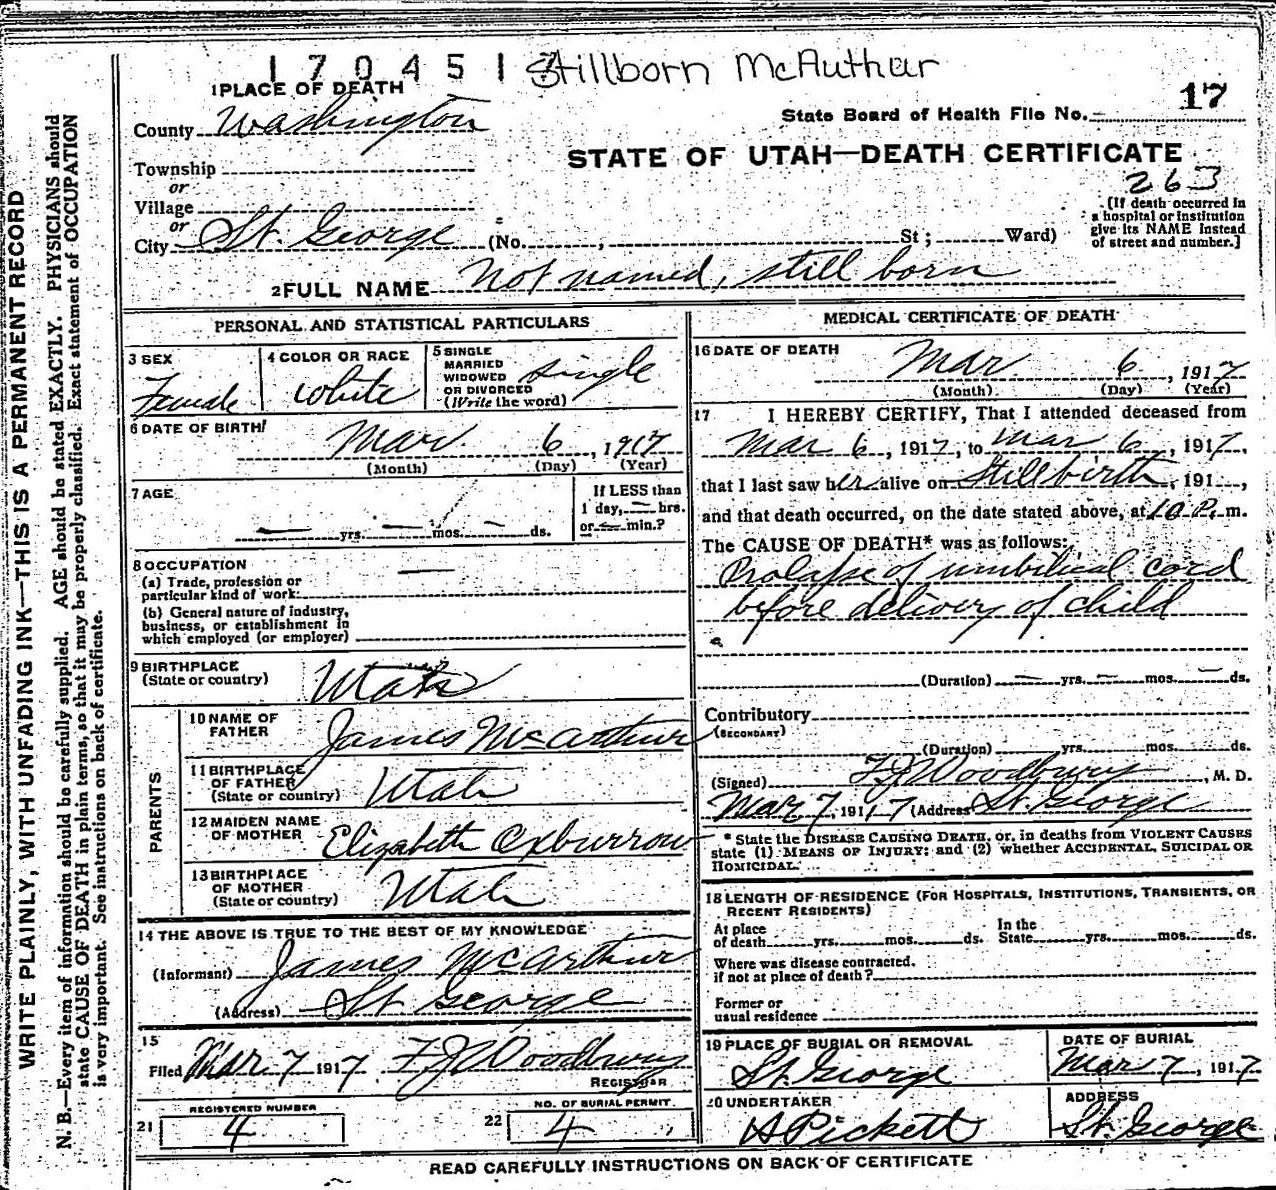 1704517 Stillborn McAuthur
1 PLACE OF DEATH
17
State Board of Health File No.
County Washington
STATE OF UTAH—DEATH CERTIFICATE
263
Township
or
Village
or
City St. George (No. , St; Ward)
(If death occurred in a hospital or institution give its NAME instead of street and number.]
2 FULL NAME Not named, still born
PERSONAL AND STATISTICAL PARTICULARS
3 SEX Female
4 COLOR OR RACE white
5 SINGLE MARRIED WIDOWED OR DIVORCED (Write the word) single
6 DATE OF BIRTH Mar. 6, 1917
(Month) (Day) (Year)
7 AGE
— yrs. — mos. — ds.
If LESS than 1 day, — hrs. or — min.?
8 OCCUPATION —
(a) Trade, profession or particular kind of work
(b) General nature of industry, business, or establishment in which employed (or employer)
9 BIRTHPLACE (State or country) Utah
PARENTS
10 NAME OF FATHER James McArthur
11 BIRTHPLACE OF FATHER (State or country) Utah
12 MAIDEN NAME OF MOTHER Elizabeth Oxburrow
13 BIRTHPLACE OF MOTHER (State or country) Utah
14 THE ABOVE IS TRUE TO THE BEST OF MY KNOWLEDGE
(Informant) James McArthur
(Address) St George
15
Filed Mar 7 1917. F J Woodbury
REGISTRAR
REGISTERED NUMBER
21 4
NO. OF BURIAL PERMIT
22 4
MEDICAL CERTIFICATE OF DEATH
16 DATE OF DEATH Mar 6, 1917
(Month) (Day) (Year)
17 I HEREBY CERTIFY, That I attended deceased from
Mar 6, 1917, to Mar 6, 1917,
that I last saw her alive on Stillbirth, 191 ,
and that death occurred, on the date stated above, at 10 P. m.
The CAUSE OF DEATH* was as follows:
Prolapse of umbilical cord
before delivery of child
(Duration) — yrs. — mos. — ds.
Contributory
(SECONDARY)
(Duration) yrs. mos. ds.
(Signed) F J Woodbury, M. D.
Mar 7, 1917 (Address St. George
* State the DISEASE CAUSING DEATH, or, in deaths from VIOLENT CAUSES
state (1) MEANS OF INJURY; and (2) whether ACCIDENTAL, SUICIDAL OR
HOMICIDAL.
18 LENGTH OF RESIDENCE (FOR HOSPITALS, INSTITUTIONS, TRANSIENTS, OR
RECENT RESIDENTS)
At place of death yrs. mos. ds. In the State yrs. mos. ds.
Where was disease contracted, if not at place of death?
Former or usual residence
19 PLACE OF BURIAL OR REMOVAL St. George
DATE OF BURIAL Mar 7, 1917.
20 UNDERTAKER A Pickett
ADDRESS St. George
READ CAREFULLY INSTRUCTIONS ON BACK OF CERTIFICATE
WRITE PLAINLY, WITH UNFADING INK—THIS IS A PERMANENT RECORD
N. B.—Every item of information should be carefully supplied. AGE should be stated EXACTLY. PHYSICIANS should
state CAUSE OF DEATH in plain terms, so that it may be properly classified. Exact statement of OCCUPATION
is very important. See instructions on back of certificate.